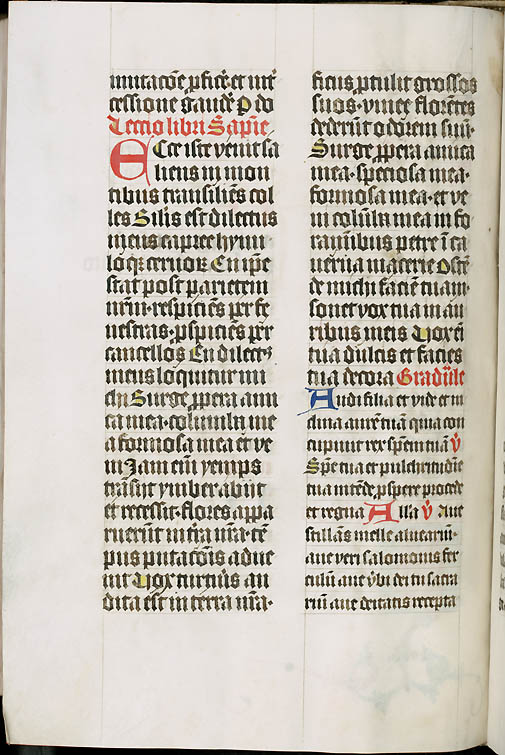 mutacōe ꝓficēt et int̄
cessione gaudēt ꝑ do
Leccio libri Sapīe
Ecce iste venit sa
liens in mon
tibus transiliēs col
les Silis est dilectus
meus capree hynu
loqꝫ ceruoꝝ En ip̄e
stat post parietem
nr̄m· respiciēs per fe
nestras· ꝓspiciēs per
cancellos En dilectꝰ
meus loquitur mi
chi Surge ꝓpera ami
ca mea· columba me
a formosa mea et ve
ni Iam eni yemps
trāsiit ymber abiit
et recessit· flores appa
ruerūt in tr̄a nr̄a· tē
pus putacōis adue
nit Vox turturis au
dita est in terra nr̄a·
ficus ꝓtulit grossos
suos· vinee florētes
dederūt odorem suū·
Surge ꝓpera amica
mea· speciosa mea·
formosa mea· et ve
ni colūba mea in fo
raminibus petre ī ca
uerna macerie Ostē
de michi faciē tuam·
sonet vox tua in au
ribus meis Vox eni
tua dulcis et facies
tua decora Gradūle
Audi filia et vide et in
clina aurē tuā quia con
cupiuit rex spēm tuā ℣
Spēe tua et pulchritudīe
tua intēde, ꝓspere procede
et regna Alla ℣ Aue
stillās melle aluearū·
aue veri salomonis fer
culū aue v̄bi dei tu sacra
riū aue deitatis recepta